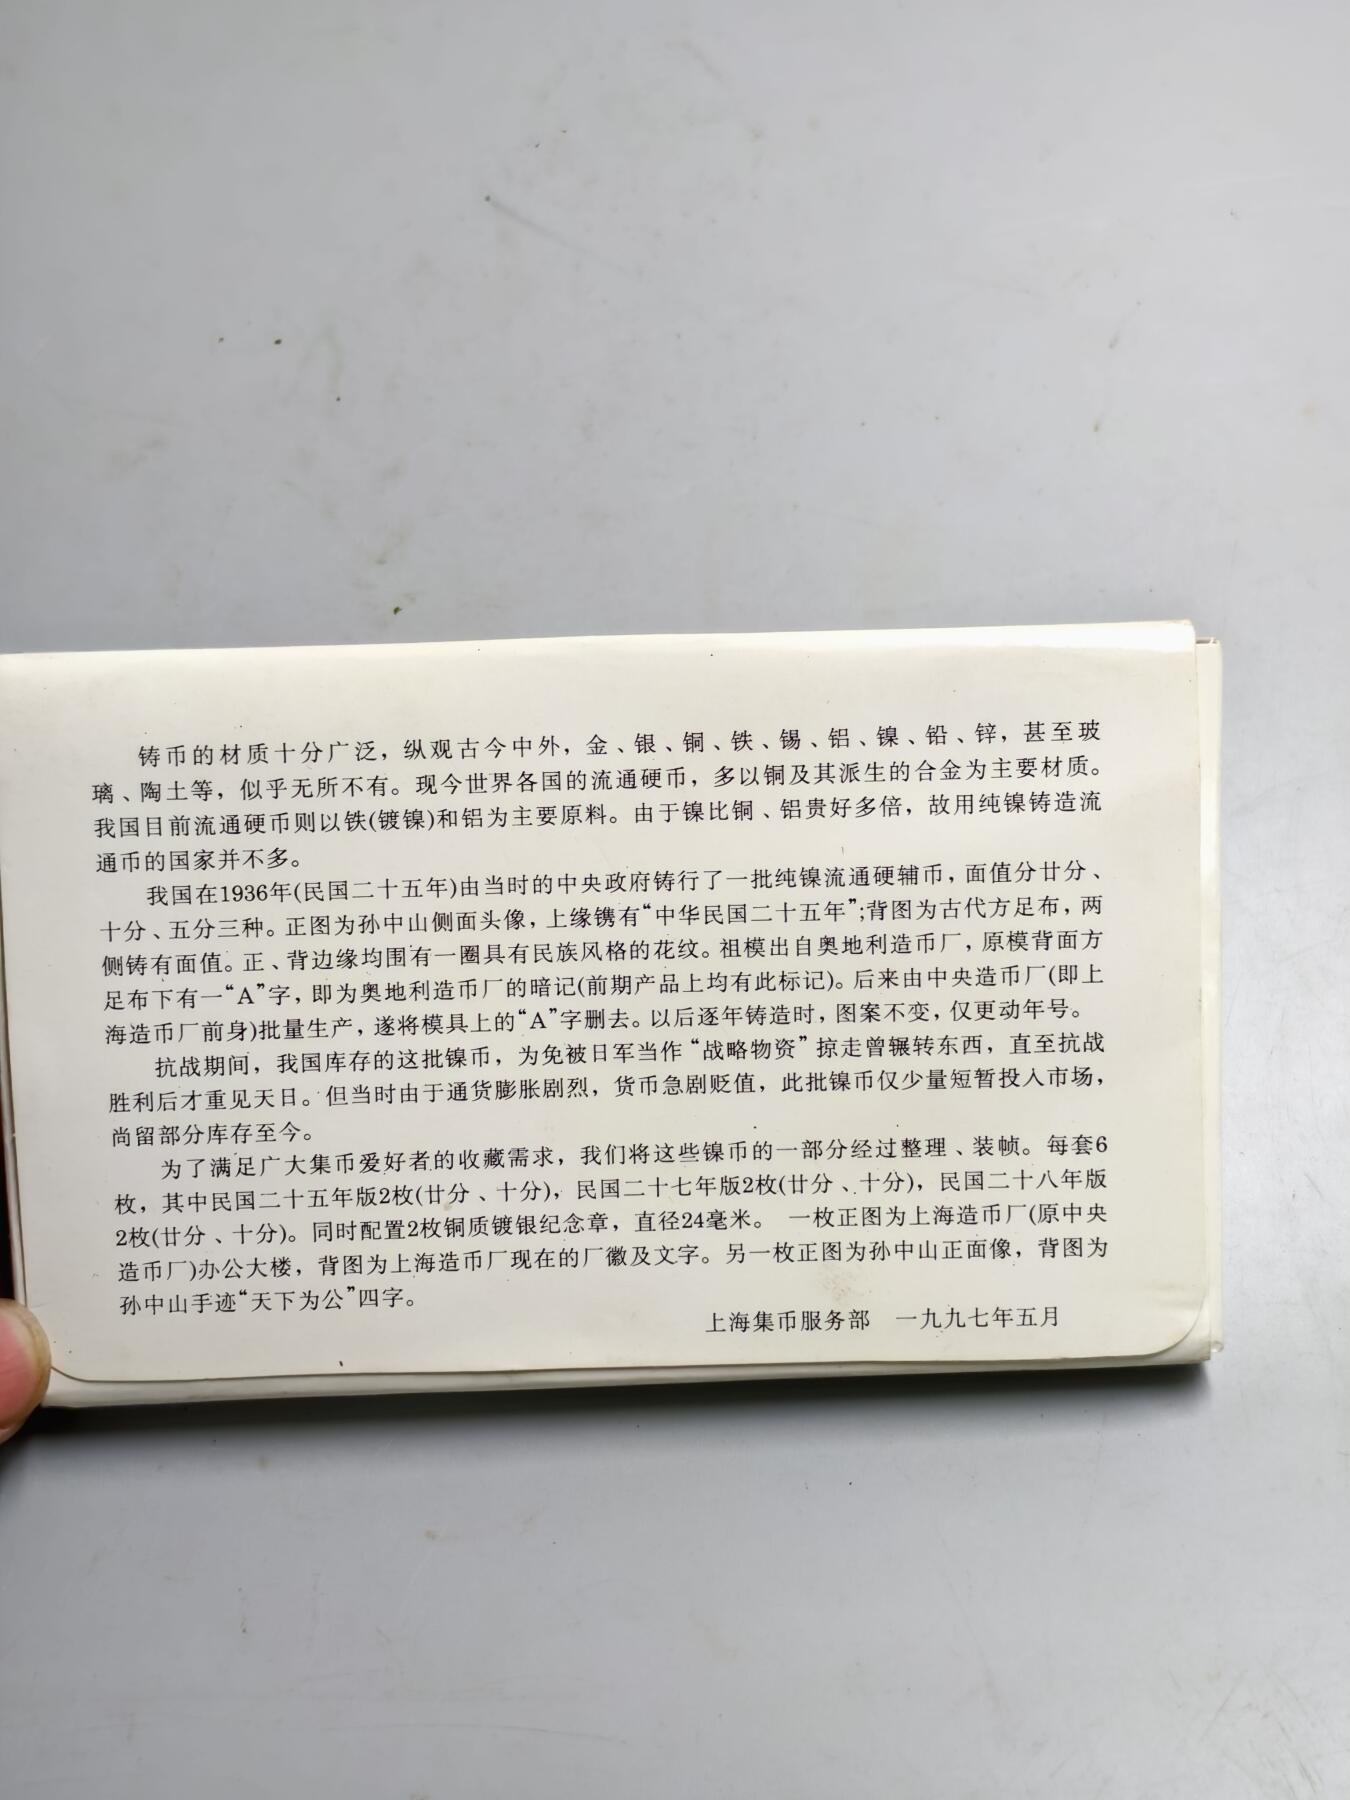 铸币的材质十分广泛，纵观古今中外，金、银、铜、铁、锡、铝、镍、铅、锌，甚至玻
璃、陶土等，似乎无所不有。现今世界各国的流通硬币，多以铜及其派生的合金为主要材质。
我国目前流通硬币则以铁(镀镍)和铝为主要原料。由于镍比铜、铝贵好多倍，故用纯镍铸造流
通币的国家并不多。
我国在1936年(民国二十五年)由当时的中央政府铸行了一批纯镍流通硬辅币，面值分廿分、
十分、五分三种。正图为孙中山侧面头像，上缘镌有“中华民国二十五年”;背图为古代方足布，两
侧铸有面值。正、背边缘均围有一圈具有民族风格的花纹。祖模出自奥地利造币厂，原模背面方
足布下有一“A”字，即为奥地利造币厂的暗记(前期产品上均有此标记)。后来由中央造币厂(即上
海造币厂前身)批量生产，遂将模具上的“A”字删去。以后逐年铸造时，图案不变，仅更动年号。
抗战期间，我国库存的这批镍币，为免被日军当作“战略物资”掠走曾辗转东西，直至抗战
胜利后才重见天日。但当时由于通货膨胀剧烈，货币急剧贬值，此批镍币仅少量短暂投入市场，
尚留部分库存至今。
为了满足广大集币爱好者的收藏需求，我们将这些镍币的一部分经过整理、装帧。每套6
枚，其中民国二十五年版2枚(廿分、十分)，民国二十七年版2枚(廿分、十分)，民国二十八年版
2枚(廿分、十分)。同时配置2枚铜质镀银纪念章，直径24毫米。 一枚正图为上海造币厂(原中央
造币厂)办公大楼，背图为上海造币厂现在的厂徽及文字。另一枚正图为孙中山正面像，背图为
孙中山手迹“天下为公”四字。
上海集币服务部 一九九七年五月